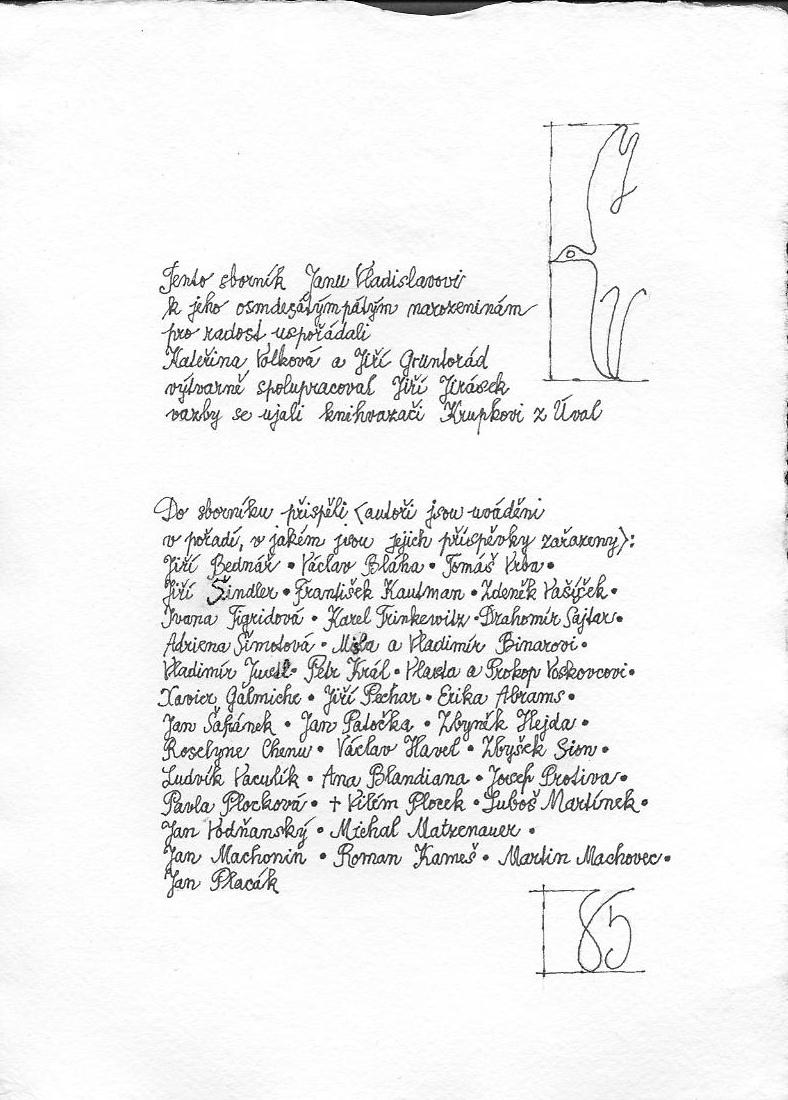 J
V
Tento sborník Janu Vladislavovi
k jeho osmdesátýmpátým narozeninám
pro radost uspořádali
Kateřina Volková a Jiří Gruntorád
výtvarně spolupracoval Jiří Jirásek
vazby se ujali knihvazači Krupkovi z Úval
Do sborníku přispěli (autoři jsou uváděni
v pořadí, v jakém jsou jejich příspěvky zařazeny):
Jiří Bednář • Václav Bláha • Tomáš Vrba •
Jiří Šindler • František Kautman • Zdeněk Vašíček •
Ivana Tigridová • Karel Trinkewitz • Drahomír Šajtar •
Adriena Šimotová • Míla a Vladimír Binarovi •
Vladimír Justl • Petr Král • Vlasta a Prokop Voskovcovi •
Xavier Galmiche • Jiří Pechar • Erika Abrams •
Jan Šafránek • Jan Patočka • Zbyněk Hejda •
Roselyne Chenu • Václav Havel • Zbyšek Sion •
Ludvík Vaculík • Ana Blandiana • Josef Protiva •
Pavla Plocková • † Vilém Plocek • Luboš Martínek •
Jan Vodňanský • Michal Matzenauer •
Jan Machonin • Roman Kameš • Martin Machovec •
Jan Placák
85